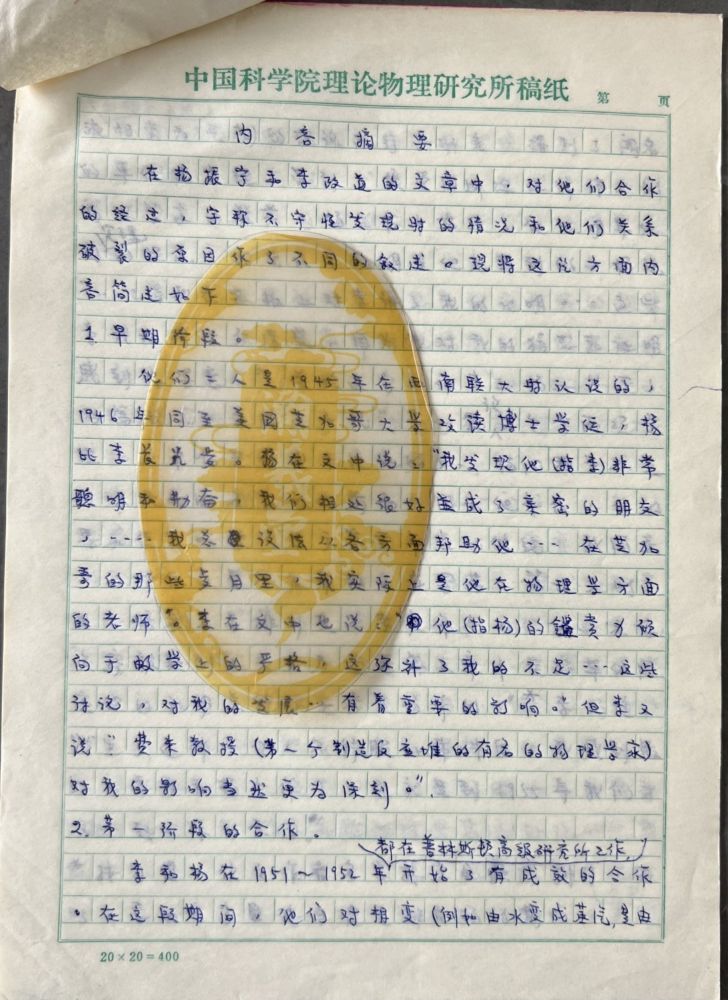 中国科学院理论物理研究所稿纸 第 页
内容摘要
在杨振宁和李政道的文章中，对他们合作
的经过，宇称不守恒发现时的情况和他们关系
破裂的原因作了不同的叙述。现将这几方面内
容简述如下
1.早期阶段。
他们二人是1945年在西南联大时认识的，
1946年同至美国芝加哥大学攻读博士学位，杨
比李长几岁。杨在文中说："我发现他(指李)非常
聪明和勤奋，我们相处很好并成了亲密的朋友
，……我总是设法从各方面帮助他……在芝加
哥的那些岁月里，我实际上是他在物理学方面
的老师"。李在文中也说："他(指杨)的鑑赏力倾
向于数学上的严格，这弥补了我的不足……这些
讨论，对我的发展…有着重要的影响。"但李又
说："费米教授(第一个制造反应堆的有名的物理学家)
对我的影响当然更为深刻。"
2.第一阶段的合作。
都在普林斯顿高级研究所工作，
李和杨在1951～1952年开始了有成效的合作
。在这段期间，他们对相变(例如由水变成蒸汽，是由
20×20=400